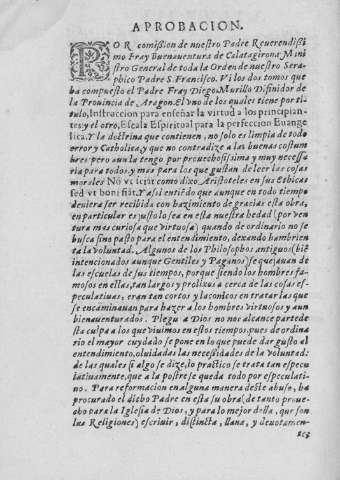 APROBACION.
POR comission de nuestro Padre Reuerendissi
mo Fray Buenauentura de Calatagirona Mini
stro General de toda la Orden de nuestro Sera-
phico Padre S. Francisco. Vi los dos tomos que
ha compuesto el Padre Fray Diego Murillo Difinidor de
la Prouincia de Aragon. El vno de los quales tiene por ti-
tulo, Instruccion para enseñar la virtud a los principian-
tes y el otro, Escala Espiritual para la perfeccion Euange
lica. Y la doctrina que contienen, no solo es limpia de todo
error y Catholica, y que no contradize a las buenas costum
bres pero aun la tengo por prouechosissima y muy necessa
ria para todos, y mas para los que gustan de leer las cosas
morales No vt sciãt como dixo Aristoteles en sus Ethicas
sed vt boni fiãt. Y assi entiẽdo que aunque en todo tiempo
deuiera ser recibida con hazimiento de gracias esta obra,
en particular es justo lo sea en esta nuestra hedad (por ven
tura mas curiosa que virtuosa) quando de ordinario no se
busca sino pasto para el entendimiento, dexando hambrien
ta la voluntad. Algunos de los Philosophos antiguos (biẽ
intencionados aunque Gentiles y Paganos) se quejauan de
las escuelas de sus tiempos, porque siendo los hombres fa-
mosos en ellas, tan largos y prolixos a cerca de las cosas es-
peculatiuas, eran tan cortos y laconicos en tratar las que
se encaminauan para hazer a los hombres virtuosos y aun
bienauenturados. Plegu a Dios no nos alcance parte de
sta culpa a los que viuimos en estos tiempos, pues de ordina
rio el mayor cuydado se pone en lo que puede dar gusto al
entendimiento, oluidadas las necessidades de la voluntad:
de las quales si algo se dize, lo practico se trata tan especu
latiuamente, que a la postre se queda todo por especulati-
no. Para reformacion en alguna manera deste abuso, ha
procurado el dicho Padre en esta su obra (de tanto proue-
cho para la Iglesia de Dios, y para lo mejor della, que son
las Religiones) escriuir, distincta, llana, y deuotamen-